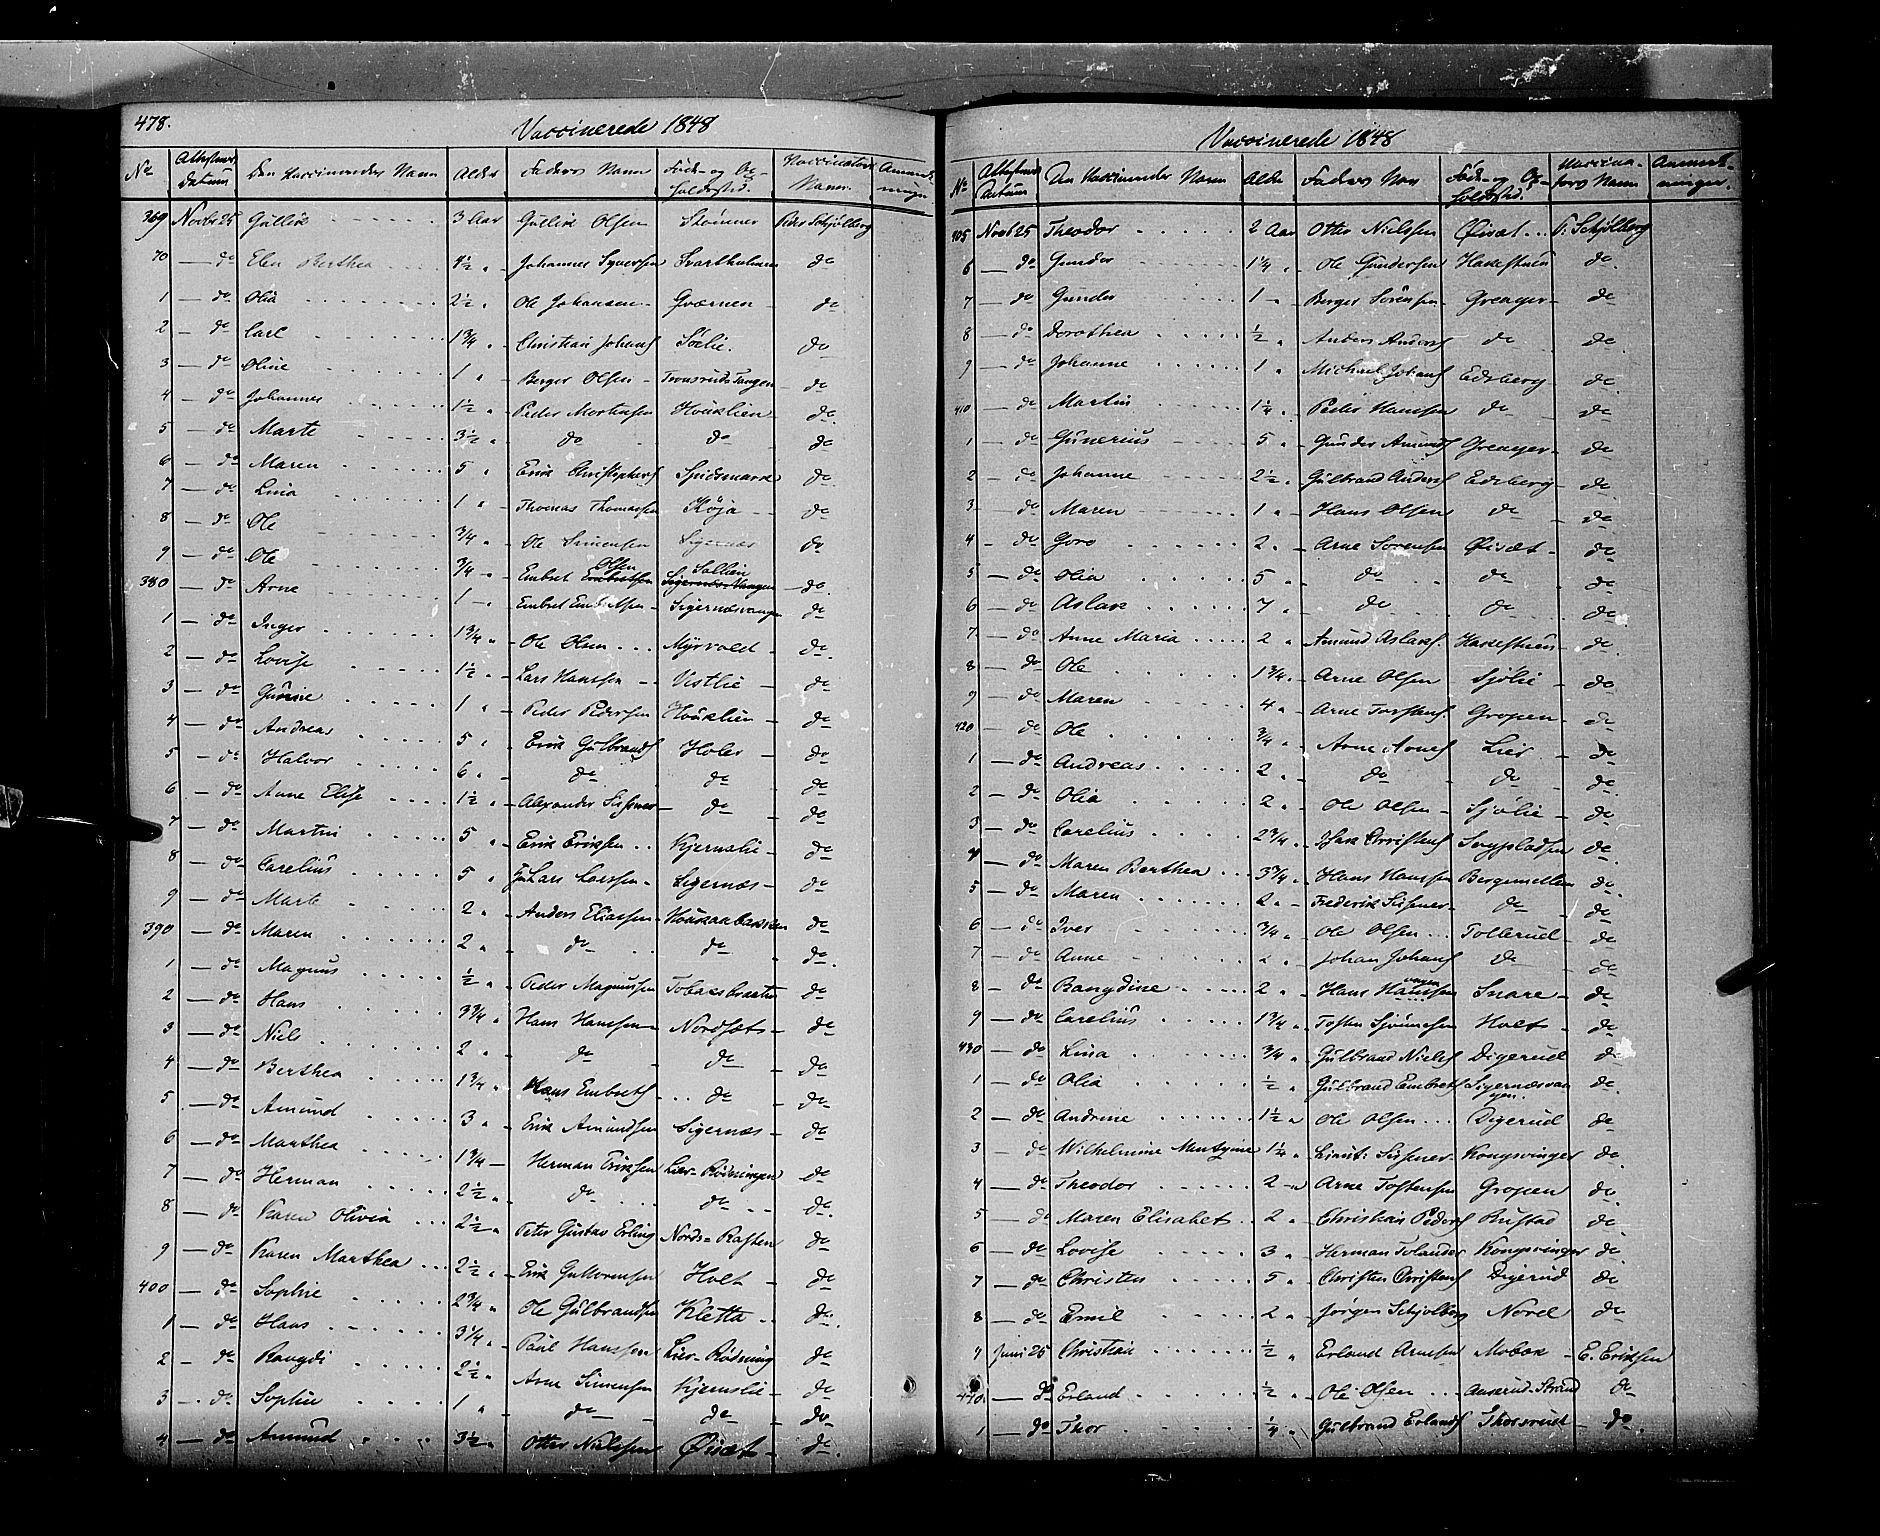 478.
Vaccinerede 1848
No Attestens Datum Den Vaccineredes Navn Alder Faders Navn Føde- og Opholdssted. Vaccinateurs Navn. Anmærkninger
369 Novbr 25 Gullik 3 Aar Gullik Olsen Stømner Peder Schjølberg
70 — do Elen Berthea 4½ " Johannes Syversen Svartholmen do
1 — do Olia 2½ " Ole Johansen Gværnen do
2 — do Carl 1¾ " Christian Johans Sølie. do
3 — do Oline 1 " Berger Olsen Tronsruds Tangen do
4 — do Johannes 1½ " Peder Mortensen Houklien do
5 — do Marte 3½ " do do do
6 — do Maren 5 " Erik Christophers Spidsmark do
7 — do Lina 1 " Thomas Thomassen Køja do
8 — do Ole ¾ " Ole Simensen Sigernæs do
9 — do Ole ¾ " Embret Olsen Sollien do
380 — do Arne 1 — Embret Embretsen Sigernæsvangen do
1 — do Inger 1¾ " Ole Olsen Myrvold do
2 — do Lovise 1½ " Lars Hanssen Vestlie do
3 — do Gunnie 1 " Peder Pedersen Houklien do
4 — do Andreas 5 " Erik Gulbrands Holer do
5 — do Halvor 6 " do do do
6 — do Anne Elise 1½ " Alexander Sissener do do
7 — do Martin 5 " Erik Eriksen Kjernslie do
8 — do Carelius 5 " Lars Larssen Sigernæs do
9 — do Marte 2 " Anders Eliassen Houkaabakken do
390 — do Maren 2 " do do do
1 — do Magnus ½ " Peder Magnussen Tobaksbraaten do
2 — do Hans 3¾ " Hans Hanssen Nordsæts do
3 — do Niels 2 " do do do
4 — do Berthea 1¾ " Hans Embrets do do
5 — do Amund 3 " Erik Amundsen Sigernæs do
6 — do Marthea 1¾ — Herman Eriksen Lier-Rødningen do
7 — do Herman 2½ " do do do
8 — do Karen Olivia 2½ " Peter Gustav Erling Nords-Rasten do
9 — do Karen Marthea 2½ " Erik Guttormsen Holt do
400 — do Sophie 2¾ " Ole Gulbrandsen Kletta do
1 — do Hans 3¼ " Paul Hanssen Lier-Rødning do
2 — do Rangdi 2½ " Arne Simensen Kjernslie do
3 — do Sophie 1 " do do do
4 — do Amund 3½ " Otter Nielssen Øisæt do
Vaccinerede 1848
No Attestens Datum Den Vaccineredes Navn Alder Faders Navn Føde- og Opholdssted. Vaccinators Navn Anmærkninger.
405 Novb 25 Theodor 2 Aar Otter Nielssen Øisæt P. Schjølberg
6 — do Gunder 1¼ " Ole Gundersen Hakestuen do
7 — do Gunder 1 " Berger Sørensen Greager do
8 — do Dorothea ½ " Anders Anders do do
9 — do Johanne 1 " Michael Johans Edsberg do
410 — do Martin 1¼ " Peder Hanssen do do
1 — do Gunerius 5 " Gunder Amunds Greager do
2 — do Johanne 2½ " Gulbrand Anders Edsberg do
3 — do Maren 1 " Hans Olsen do do
4 — do Goro 2 " Arne Sørensen Øisæt do
5 — do Olia 5 " do do do
6 — do Aslak 7 " do do do
7 — do Anne Maria 2 " Amund Aslaks. Hakestuen do
8 — do Ole 1¾ " Arne Olsen Sjølie do
9 — do Maren 4 " Arne Torstens. Gropen do
420 — do Ole ¾ " Arne Arnes Lier do
1 — do Andreas 2 " do do do
2 — do Olia 2 " Ole Olsen Sjølie do
3 — do Carelius 2¾ " Christens do
4 — do Maren Berthea 3¾ " Hans Hanssen Bergemellem do
5 — do Maren 2 " Frederik Sissener do do
6 — do Iver ¾ " Ole Olsen Tollerud do
7 — do Anne 2 " Johan Johans do do
8 — do Rangdine 2 " Hans Hanssen Snare do
9 — do Carelius 1¾ " Tosten Holt do
430 — do Lina ¾ " Gulbrand Niels Digerud do
1 — do Olia ½ " Gulbrand Embrets Sigernæsvangen. do
2 — do Andrine 1½ " Ole Olsen Digerud do
3 — do Wilhelmine Mentzine 1¼ " Lieut: Sissener Kongsvinger do
4 — do Theodor 2 " Arne Tostensen Gropen do
5 — do Maren Elisabet 2 " Christian Peders Rustad do
6 — do Lovise 3 " Herman Tolander Kongsvinger do
7 — do Christen 5 " Christen Christens Digerud do
8 — do Emil 2 " Jørgen Schjølberg Norel do
9 Juni 25 Christian ½ " Erland Arnesen Mobæk E. Eriksen
440 — do Erland ½ " Ole Olsen Aaserud-Strand do
1 — do Thor ¼ " Gulbrand Erlands Thorsrud do